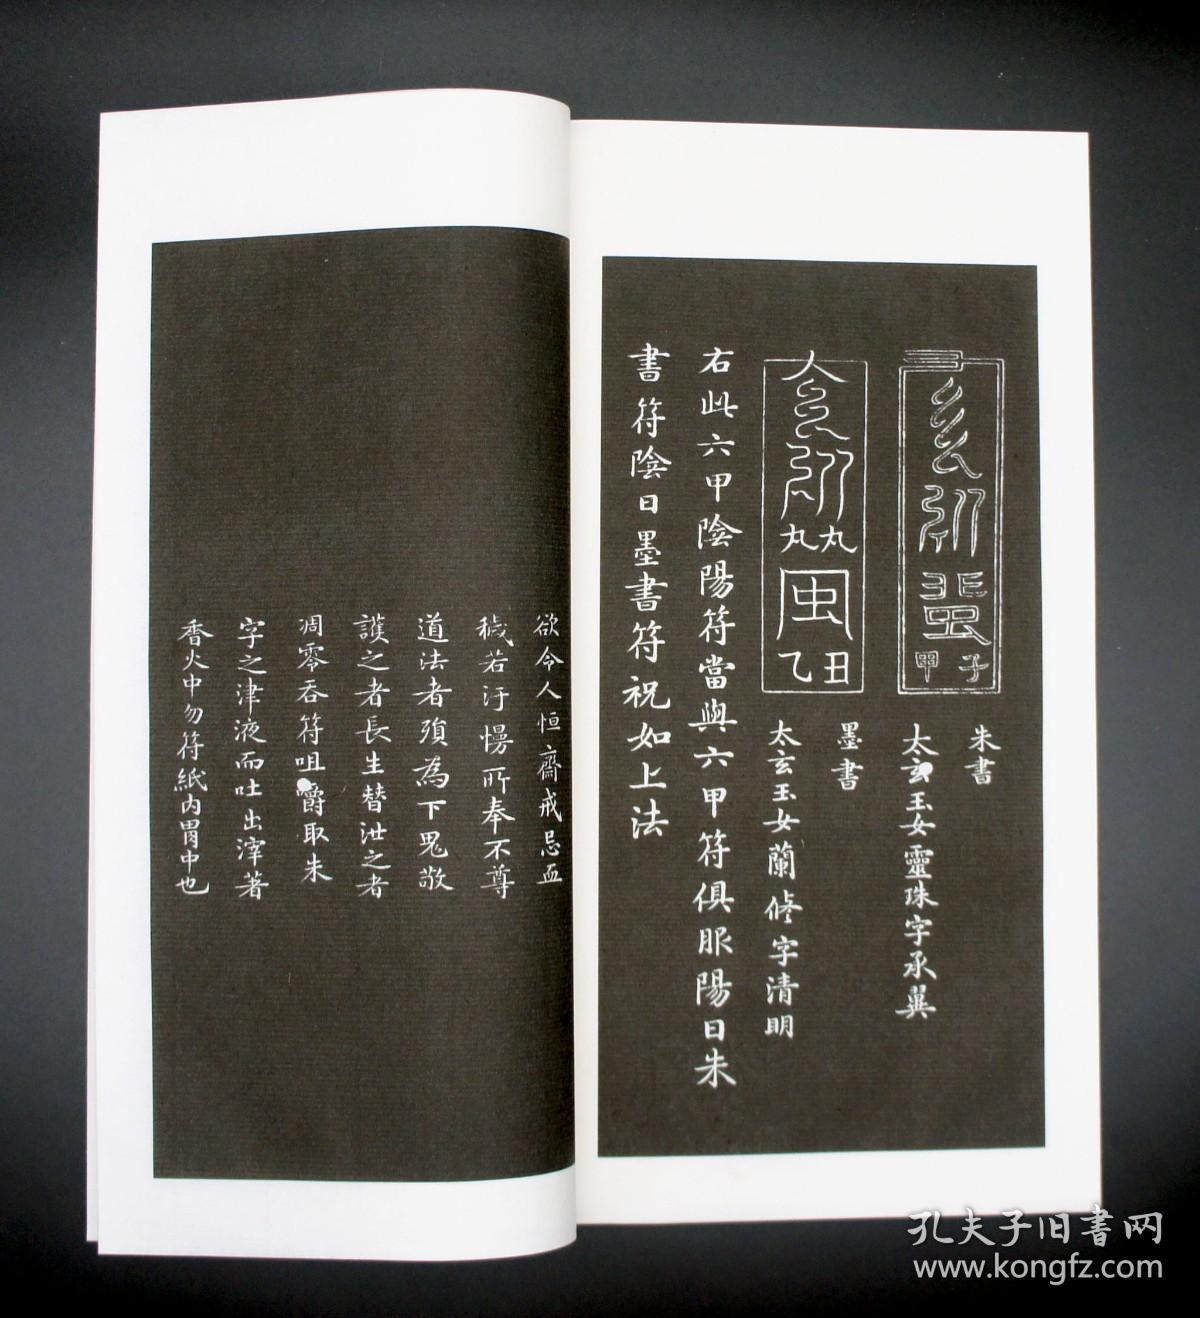 子
甲
朱書
太玄玉女靈珠字承翼
丑
乙
墨書
太玄玉女蘭修字清明
右此六甲陰陽符當與六甲符俱服陽日朱
書符陰日墨書符祝如上法
欲令人恒齋戒忌血
穢若汙慢所奉不尊
道法者殞為下鬼敬
護之者長生替泄之者
凋零吞符咀嚼取朱
字之津液而吐出滓著
香火中勿符紙內胃中也
孔夫子旧書网
www.kongfz.com